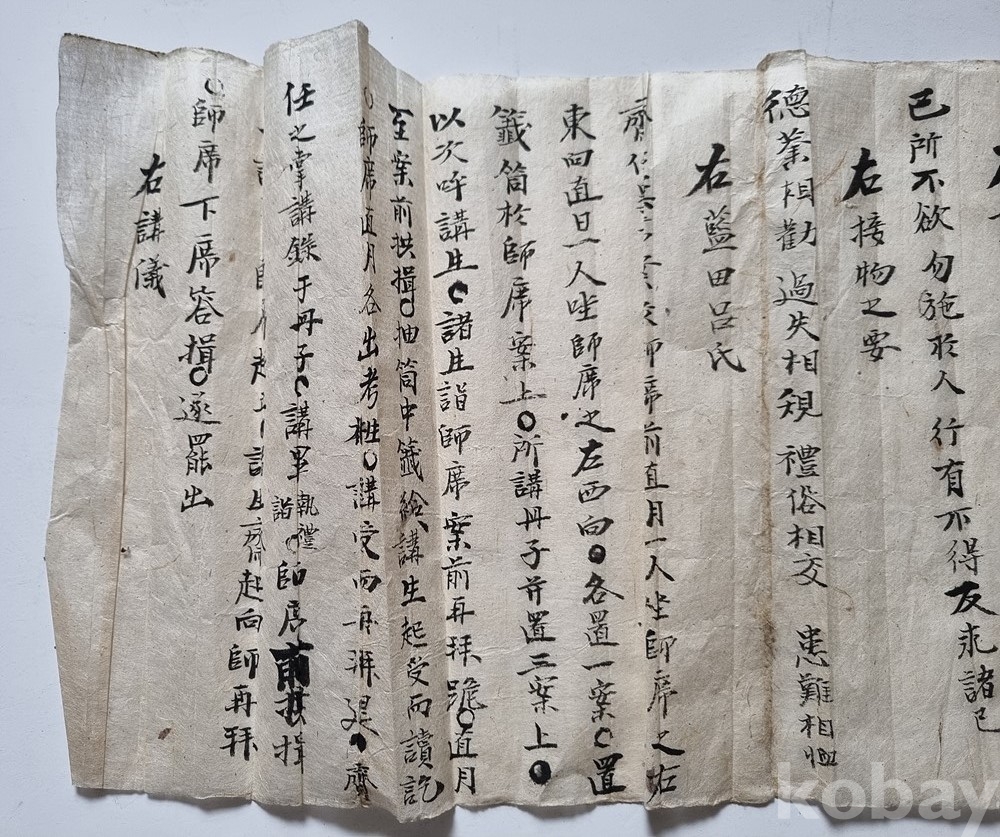 已所不欲勿施於人行有不得反求諸己
右接物之要
德業相勸 過失相規 禮俗相交 患難相恤
右藍田呂氏
席前直月一人坐師席之右
東回直日一人坐師席之左西向○各置一案○置
籤筒於師席案上○所講冊子并置三案上○
以次呼講生○諸生詣師席案前再拜跪○直月
至案前拱揖○抽筒中籤給講生起受而讀訖
○師席直月各出考牲○講受而再拜退○齋
任之掌講錄于冊子○講畢執禮詣○師席前拱揖
起向師再拜
○師席下席答揖○遂罷出
右講儀
kobay